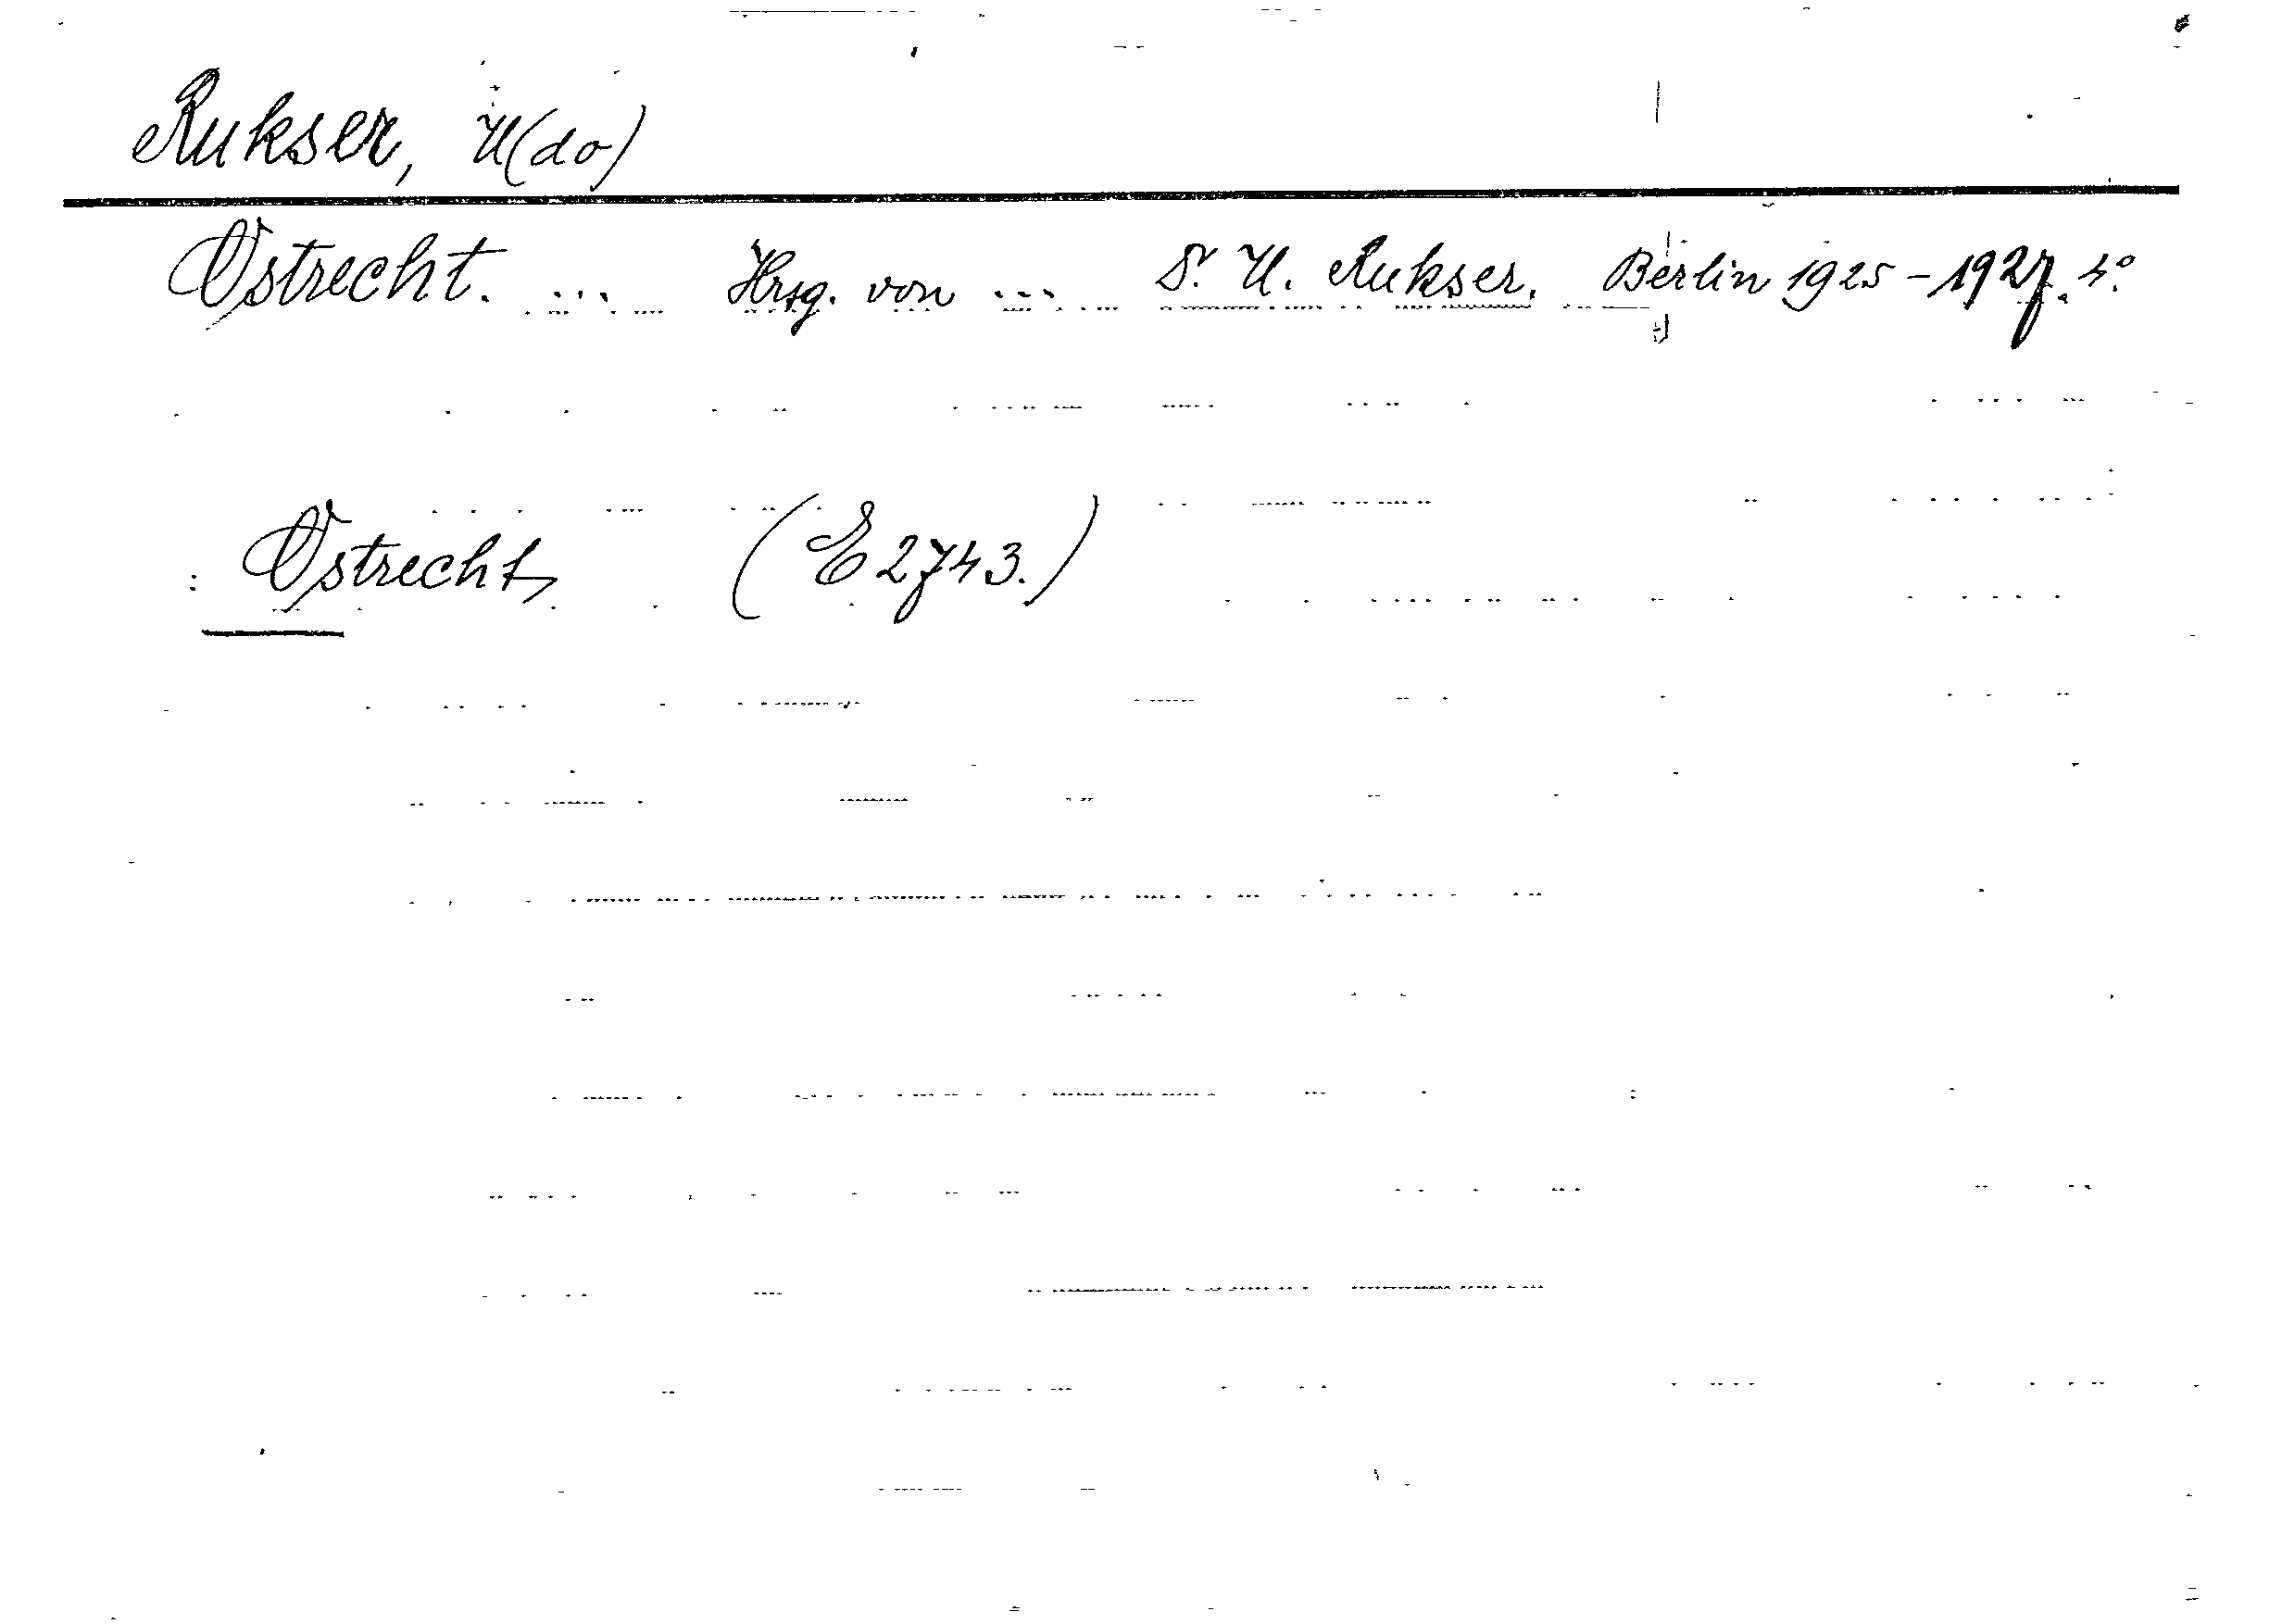 Rukser, U(do)
Ostrecht. ... Hrsg. von ... Dr. U. Rukser. Berlin 1925-1927. 4°.
: Ostrecht, (E 2743.)